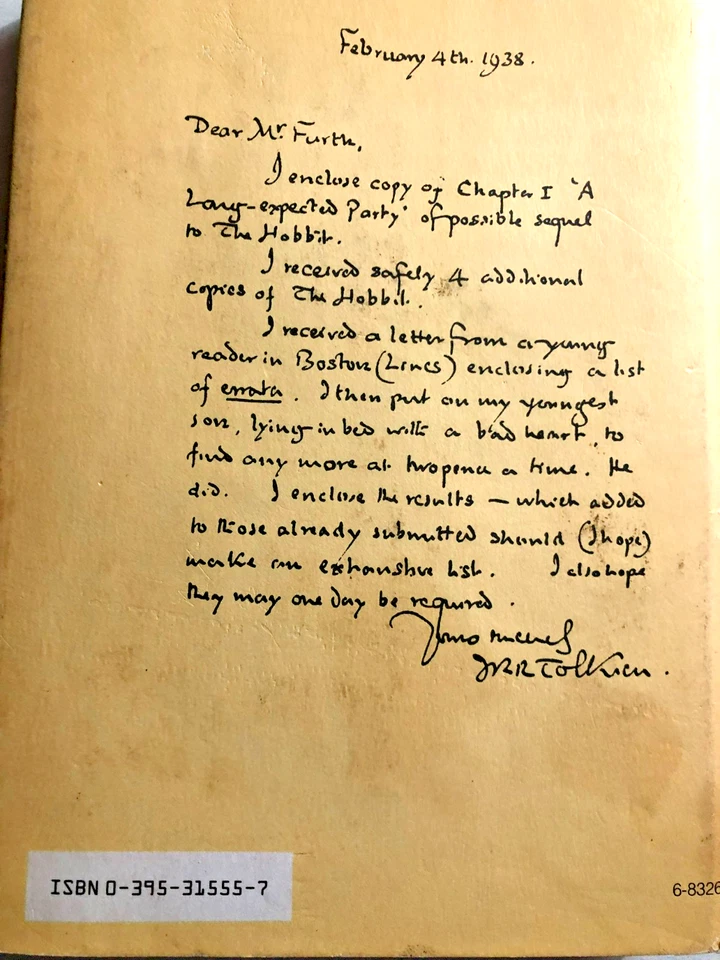 February 4th. 1938.
Dear Mr. Furth,
I enclose copy of Chapter I 'A
Long-expected Party' of possible sequel
to The Hobbit.
I received safely 4 additional
copies of The Hobbit.
I received a letter from a young
reader in Boston (Lincs) enclosing a list
of errata. I then put on my youngest
son, lying in bed with a bad heart, to
find any more at twopence a time. He
did. I enclose the results — which added
to those already submitted should (I hope)
make an exhaustive list. I also hope
they may one day be required.
Yours sincerely
JRR Tolkien.
ISBN 0-395-31555-7
6-8326